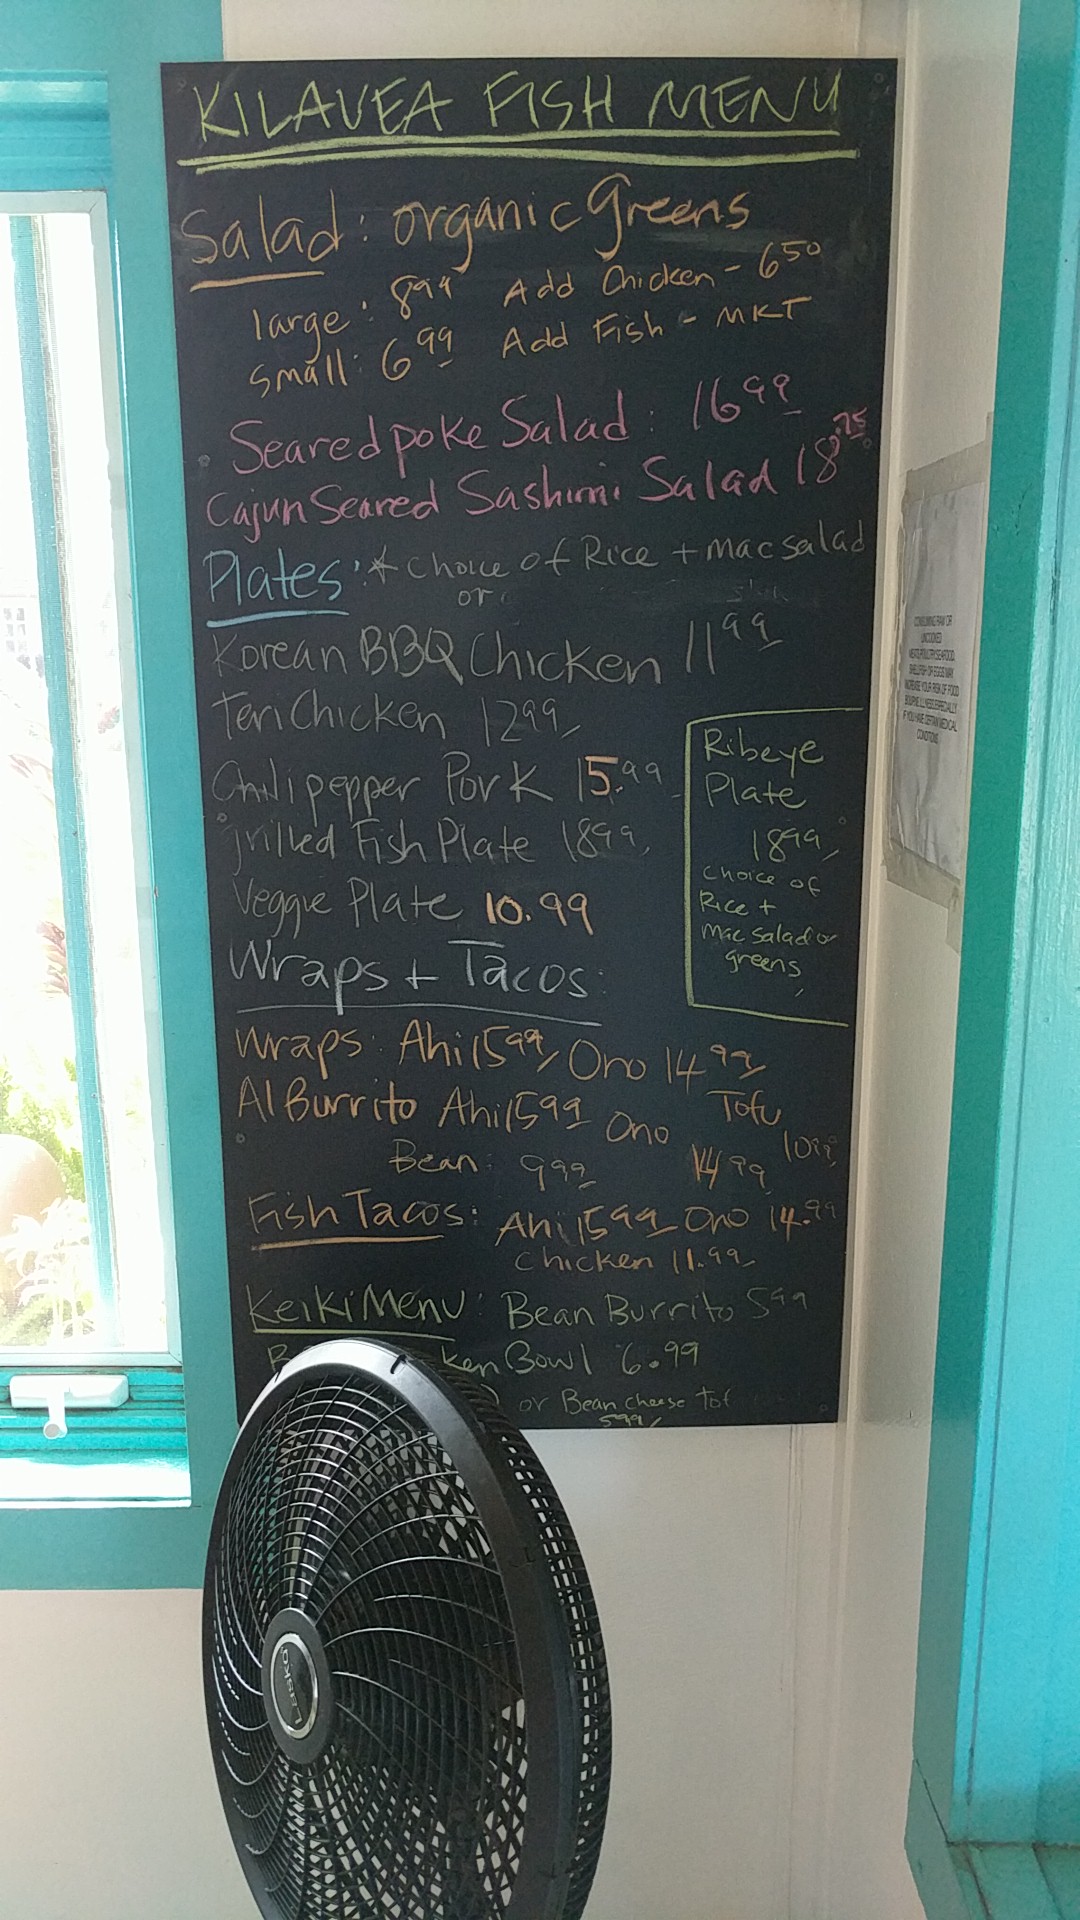 KILAVEA FISH MENU
Salad: organic greens
large: 8.99 Add Chicken - 6.50
small: 6.99 Add Fish - MKT
Seared poke Salad: 16.99
Cajun Seared Sashimi Salad 18.75
Plates: * choice of Rice + mac salad
or
Korean BBQ Chicken 11.99
Teri Chicken 12.99
Chili pepper Pork 15.99
grilled Fish Plate 18.99
Veggie Plate 10.99
Ribeye
Plate
18.99
choice of
Rice +
Mac salad or
greens
Wraps + Tacos:
Wraps: Ahi 15.99 Ono 14.99
Al Burrito Ahi 15.99 Ono 14.99 Tofu 10.99
Bean: 9.99
Fish Tacos: Ahi 15.99 Ono 14.99
Chicken 11.99
Keiki Menu: Bean Burrito 5.99
Bowl 6.99
or Bean cheese
5.99
CONSUMING RAW OR
UNCOOKED
MEATS POULTRY SEAFOOD
SHELLFISH OR EGGS MAY
INCREASE YOUR RISK OF FOOD
BOURNE ILLNESS ESPECIALLY
IF YOU HAVE CERTAIN MEDICAL
CONDITIONS
Lasko